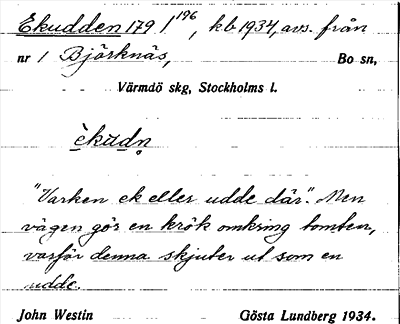 Ekudden 179 1¹⁹⁶, kb 1934, avs. från
nr 1 Björknäs, Bo sn,
Värmdö skg, Stockholms l.
"Varken ek eller udde där". Men
vägen gör en krök omkring tomten,
varför denna skjuter ut som en
udde.
John Westin Gösta Lundberg 1934.